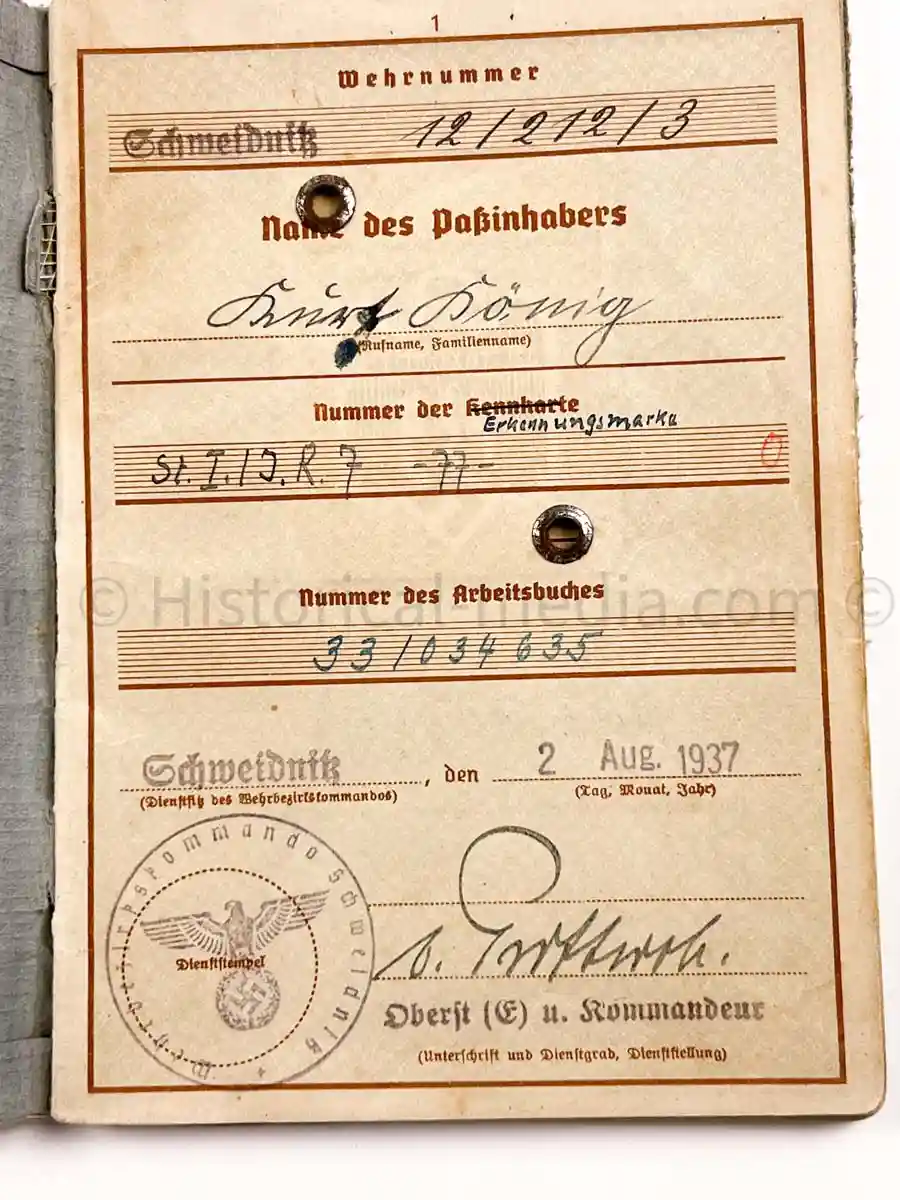 1
Wehrnummer
Schweidnitz 12/212/3
Name des Paßinhabers
Kurt König
(Rufname, Familienname)
Nummer der Kennkarte
Erkennungsmarke
St. I./J.R. 7 -77-
0
© Historical-media.com ©
Nummer des Arbeitsbuches
33/034635
Schweidnitz, den 2 Aug. 1937
(Dienstsitz des Wehrbezirkskommandos) (Tag, Monat, Jahr)
Wehrbezirkskommando Schweidnitz
Dienststempel
v. Prittwitz.
Oberst (E) u. Kommandeur
(Unterschrift und Dienstgrad, Dienststellung)